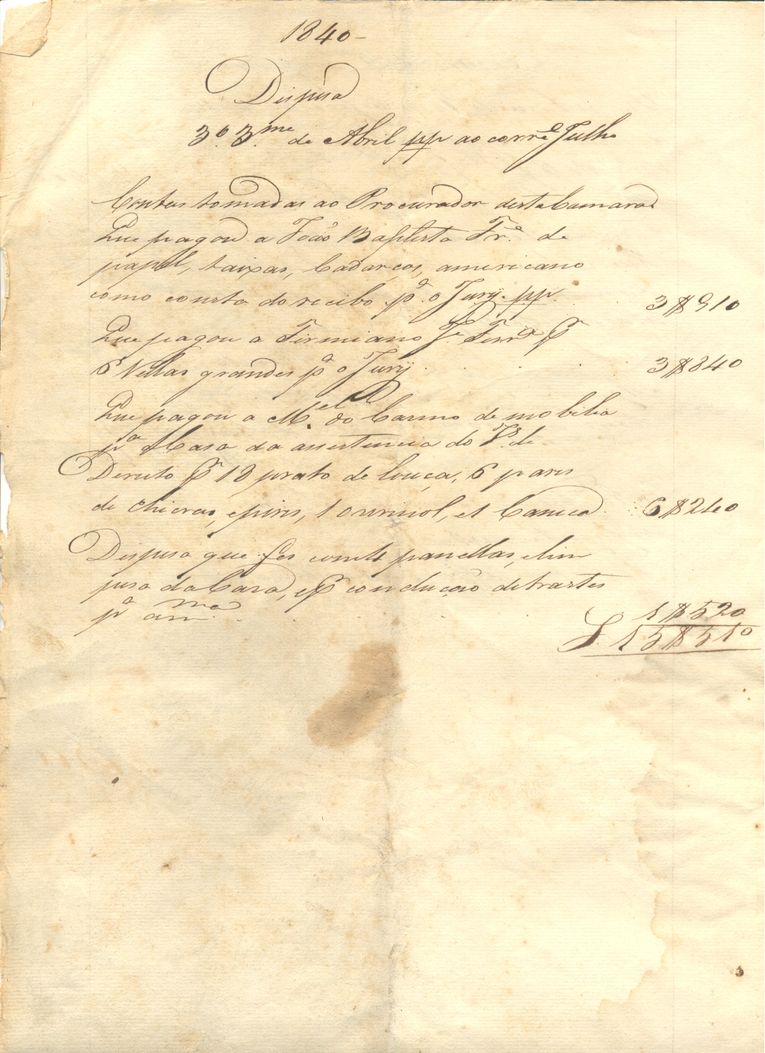 1840
Dispesa
3º 3.me de Abril pp ao corre Julho
Contas tomadas ao Procurador desta Camara
Que pagou a João Baptista Frª de
papel, taixas, Cadarços, americano
como consta do recibo pª o Jury pp. 3$910
Que pagou a Firmiano Je Ferrª pr
6 Vellas grandes pª o Jury 3$840
Que pagou a M.el do Carmo de mobilia
pª a Casa da assistencia do de
Dereito pr 18 prato de louça, 6 pares
de chicras, e pires, 1 ourinol, e 1 Caneca 6$240
Dispesa que fes com panellas, e lim
pesa da Casa, e pr condução de trastes
pª a m.ma 1$520
S. 15$510